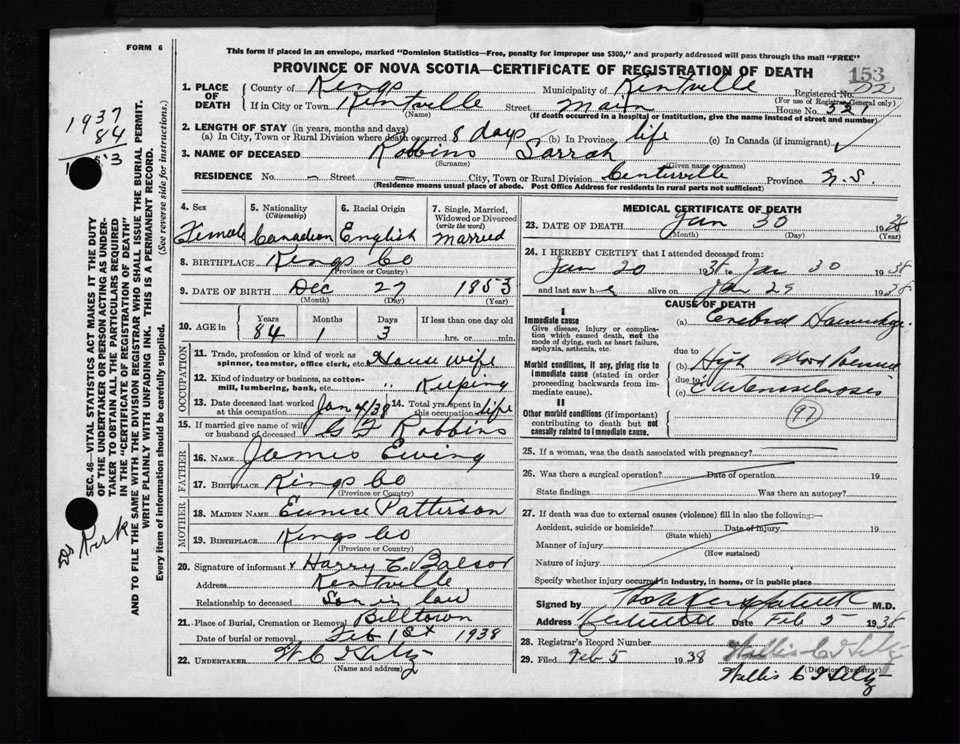 FORM 6
This form if placed in an envelope, marked "Dominion Statistics—Free, penalty for improper use $300," and properly addressed will pass through the mail "FREE"
PROVINCE OF NOVA SCOTIA—CERTIFICATE OF REGISTRATION OF DEATH
153
1. PLACE OF DEATH County of Kings Municipality of Kentville Registered No. 22
(For use of Registrar General only)
If in City or Town Kentville Street Main House No. 321
(Name) (If death occurred in a hospital or institution, give the name instead of street and number)
2. LENGTH OF STAY (in years, months and days)
(a) In City, Town or Rural Division where death occurred 8 days (b) In Province life (c) In Canada (if immigrant)
3. NAME OF DECEASED Robbins Sarrah
(Surname) (Given name or names)
RESIDENCE No. — Street — City, Town or Rural Division Centerville Province N.S.
(Residence means usual place of abode. Post Office Address for residents in rural parts not sufficient)
4. Sex Female
5. Nationality (Citizenship) Canadian
6. Racial Origin English
7. Single, Married, Widowed or Divorced (write the word) Married
8. BIRTHPLACE Kings Co
(Province or Country)
9. DATE OF BIRTH Dec 27 1853
(Month) (Day) (Year)
10. AGE in Years 84 Months 1 Days 3 If less than one day old
hrs. or min.
OCCUPATION
11. Trade, profession or kind of work as spinner, teamster, office clerk, etc. House wife
12. Kind of industry or business, as cotton-mill, lumbering, bank, etc. " Keeping
13. Date deceased last worked at this occupation Jan 4/38 14. Total yrs. spent in this occupation life
15. If married give name of wife or husband of deceased G F Robbins
FATHER
16. NAME James Ewing
17. BIRTHPLACE Kings Co
(Province or Country)
MOTHER
18. MAIDEN NAME Eunice Patterson
19. BIRTHPLACE Kings Co
(Province or Country)
20. Signature of informant Harry C. Balsor
Address Kentville
Relationship to deceased Son in law
21. Place of Burial, Cremation or Removal Billtown
Date of burial or removal Feb 1st 1938
22. UNDERTAKER W C
(Name and address)
MEDICAL CERTIFICATE OF DEATH
23. DATE OF DEATH Jan 30 1938
(Month) (Day) (Year)
24. I HEREBY CERTIFY that I attended deceased from:
Jan 20 1938 to Jan 30 1938
and last saw her alive on Jan 29 1938
CAUSE OF DEATH
I
Immediate cause
Give disease, injury or complication which caused death, not the mode of dying, such as heart failure, asphyxia, asthenia, etc.
(a) Cerebral Haemorrhage
due to
Morbid conditions, if any, giving rise to immediate cause (stated in order proceeding backwards from immediate cause).
(b) High Blood Pressure
due to
(c) Arteriosclerosis
II
Other morbid conditions (if important) contributing to death but not causally related to immediate cause.
97
25. If a woman, was the death associated with pregnancy?
26. Was there a surgical operation? Date of operation 19
State findings Was there an autopsy?
27. If death was due to external causes (violence) fill in also the following:—
Accident, suicide or homicide? Date of injury 19
(State which)
Manner of injury
(How sustained)
Nature of injury
Specify whether injury occurred in industry, in home, or in public place
Signed by M.D.
Address Date Feb 5 1938
28. Registrar's Record Number
29. Filed Feb 5 1938
(Division Registrar)
Wallis C
SEC. 46—VITAL STATISTICS ACT MAKES IT THE DUTY
OF THE UNDERTAKER OR PERSON ACTING AS UNDER-
TAKER TO OBTAIN ALL THE PARTICULARS REQUIRED
IN THE "CERTIFICATE OF REGISTRATION OF DEATH"
AND TO FILE THE SAME WITH THE DIVISION REGISTRAR WHO SHALL ISSUE THE BURIAL PERMIT.
WRITE PLAINLY WITH UNFADING INK. THIS IS A PERMANENT RECORD.
Every item of information should be carefully supplied. (See reverse side for instructions.)
1937
84
Kirk